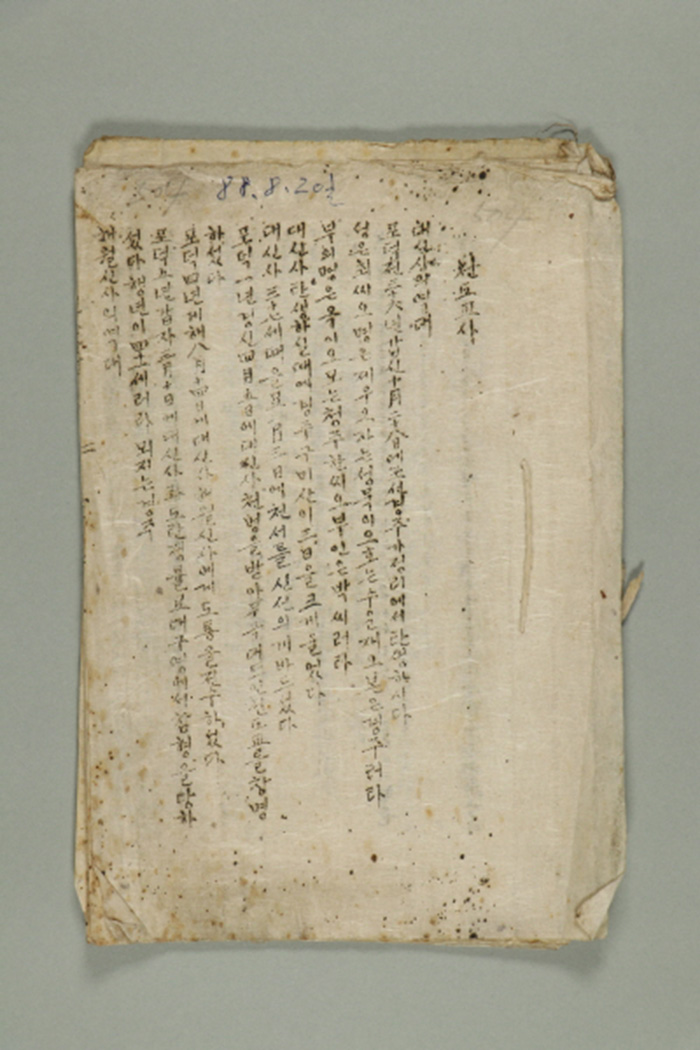 88.8.20일
천도교사
대신사의 역대
포덕전三十六年갑신十月二十八日에조선경주가정리에서탄생하시다
성은최씨오명은제우요자는성묵이요호는수운재오본은경주러라
부의명은옥이요모는청주한씨요부인은박씨러라
대신사탄생하실때에경주구미산이三日을크게울었다
대신사三十二세때을묘 月三日에천서를신선의게바드섰다
포덕一년경신四月五日에대신사천명을받아무극대도인천도교를창명
하섰다
포덕四년계해八月十四日에대신사 해월신사에게도통을전수하섰다
포덕五년갑자三月十日에대신사 대구 에서참형을당하
섰다행년이四十一세러라 묘지는경주
해월신사의역대